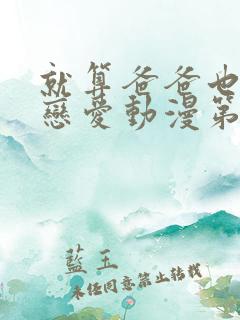 就算爸爸也
戀愛動漫第
藍玉
未經同意禁止轉載